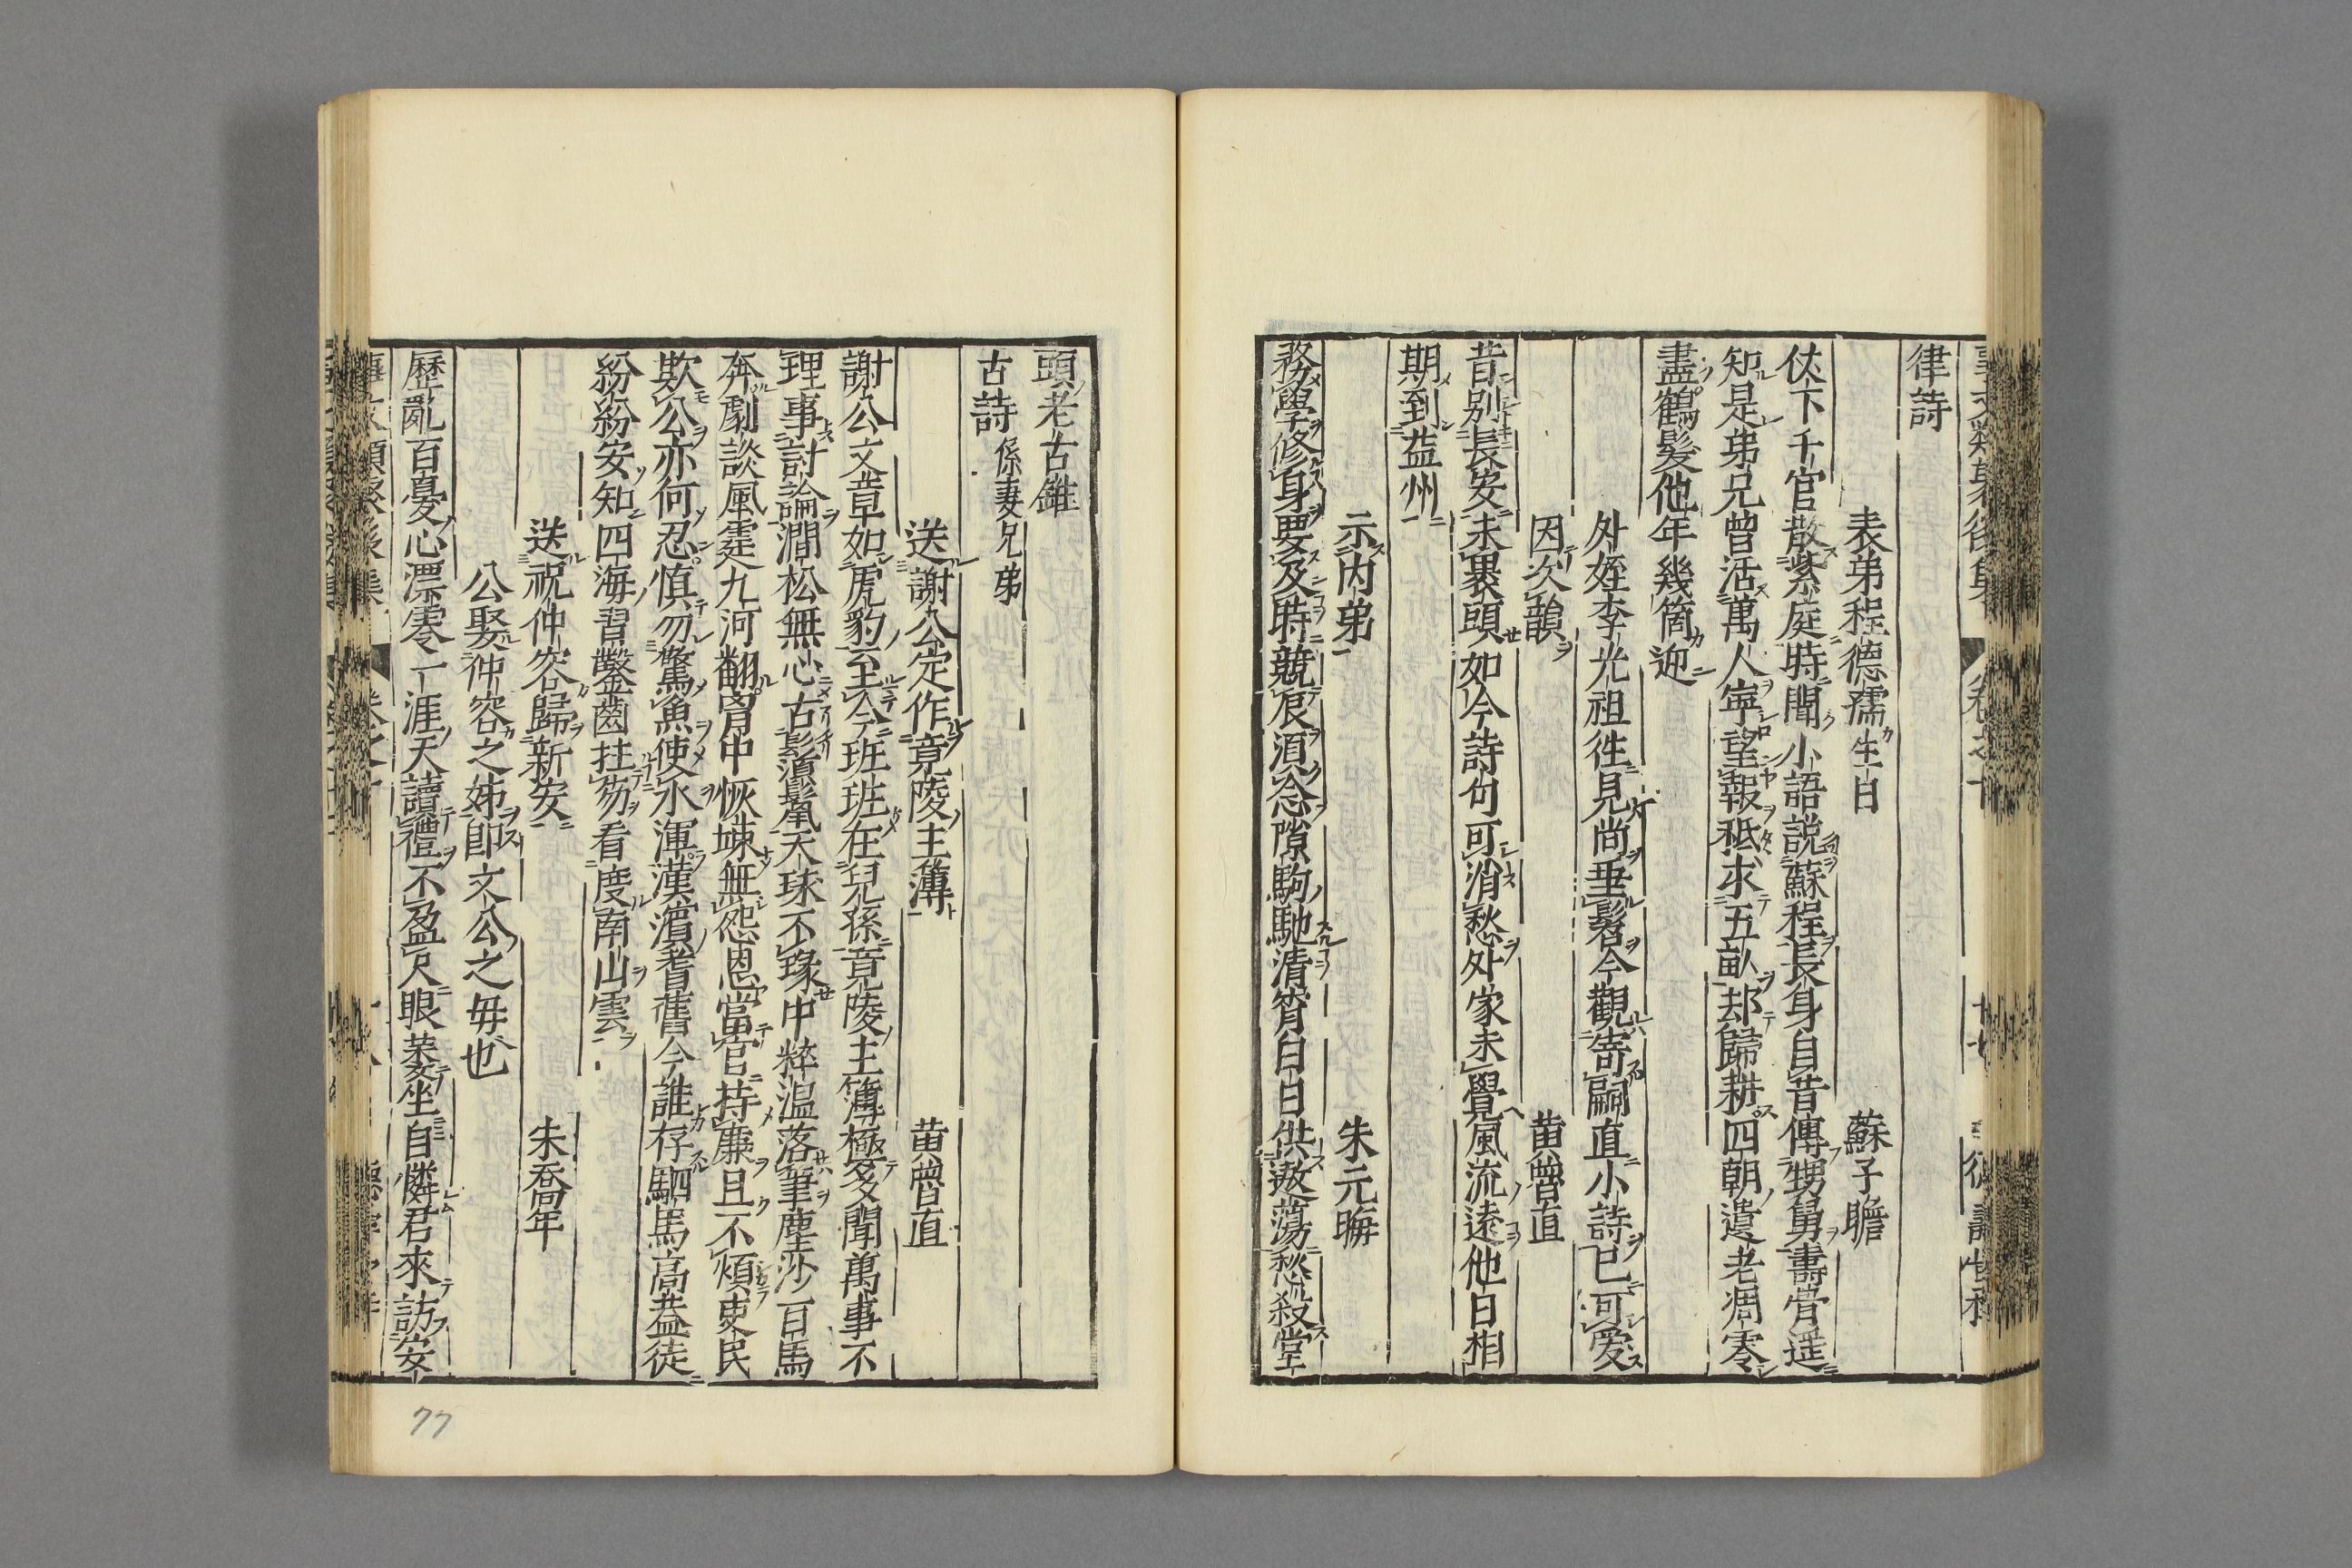 律詩
表弟程德孺生日 蘇子瞻
仗下千官散紫庭時聞小語説蘇程長身自昔傳甥舅壽骨遥
知是弟兄曾活萬人寧望報秪求五畝却歸耕四朝遺老凋零
盡鶴髮他年幾箇迎
外姪李光祖徃見尚垂髫今觀寄嗣直小詩已可愛
因次韻 黄曾直
昔别長安未裹頭如今詩句可消愁外家未覺風流遠他日相
期到益州
示内弟 朱元晦
務學修身要及時競辰須念隙駒馳清宵白日供遨蕩愁殺堂
頭老古錐
古詩 係妻兄弟
送謝公定作竟陵主薄 黄曾直
謝公文章如虎豹至今班班在兒孫竟陵主簿極多聞萬事不
理事討論澗松無心古鬚鬣天球不瑑中粹温落筆塵沙百馬
奔劇談風霆九河翻胷中恢疎無怨恩當官持廉且不煩吏民
欺公亦何忍慎勿驚魚使水渾漢濱耆舊今誰存駟馬高盖徒
紛紛安知四海習鑿齒拄笏看度南山雲
送祝仲容歸新安 朱喬年
公娶仲容之姊卽文公之毋也
歴亂百憂心漂零一涯天讀禮不盈尺眼羕坐自憐君來訪安
77